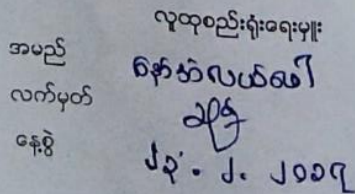 လူထုစည်းရုံးရေးမှူး
အမည် နော်အဲလယ်ဖေါ
လက်မှတ်
နေ့စွဲ ၂၃.၂.၂၀၁၇